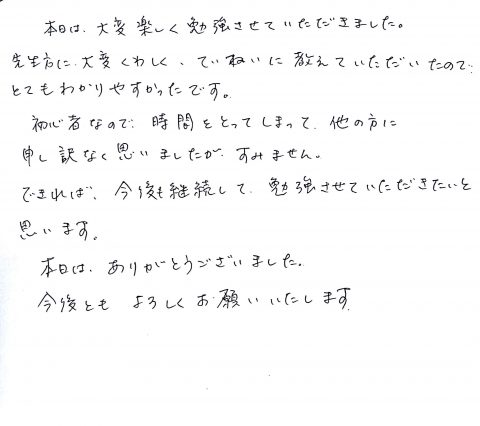 本日は、大変楽しく勉強させていただきました。
先生方に、大変くわしく、ていねいに教えていただいたので、
とてもわかりやすかったです。
初心者なので、時間をとってしまって、他の方に
申し訳なく思いましたが、すみません。
できれば、今後も継続して、勉強させていただきたいと
思います。
本日は、ありがとうございました。
今後とも よろしくお願いいたします